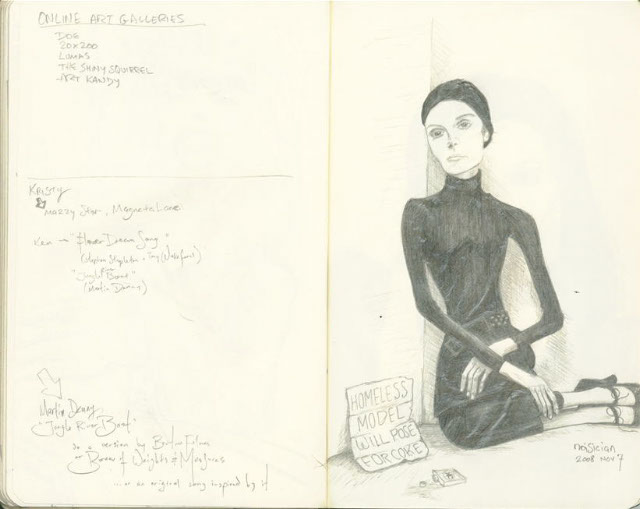 ONLINE ART GALLERIES
DOG
20x200
LUMAS
THE SHINY SQUIRREL
ART KANDY
KRISTY
MAZZY Star, Magneta Lane
Ken → "Flower Drum Song"
(Stephan Stapleton + Tony (Wakeford)
"Jungle Boat"
(Martin Denny)
Martin Denny
"Jungle River Boat"
do a version by
or Bureau of Weights & Measures
... or an original song inspired by it
HOMELESS
MODEL
WILL POSE
FOR COKE
2008 NOV 7